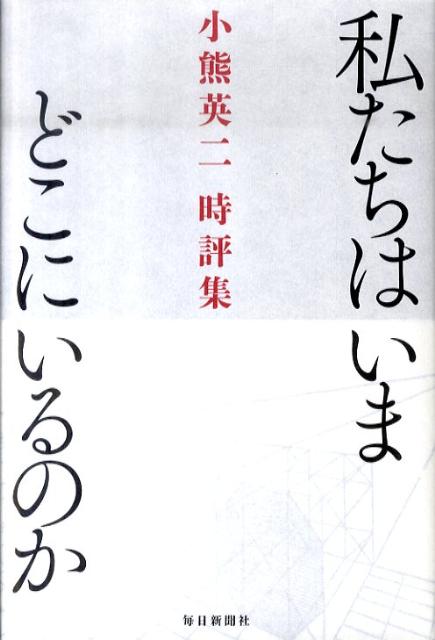 私たちは いま
どこに いるのか
小熊英二 時評集
毎日新聞社